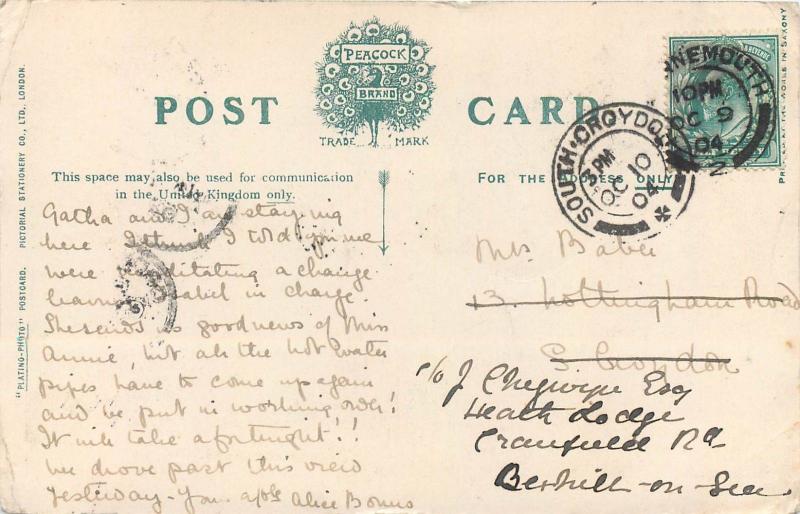 POST CARD
PEACOCK
BRAND
TRADE MARK
This space may also be used for communication
in the United Kingdom only.
FOR THE ADDRESS ONLY
"PLATINO-PHOTO" POSTCARD. PICTORIAL STATIONERY CO., LTD., LONDON.
IN SAXONY
NEMOUTH
10 PM
OC 9
04
2
SOUTH·CROYDON
PM
OC 10
04
Gatha and I are staying
here I think I told you we
were meditating a change
leaving in charge.
She sends us good news of Miss
Annie, but all the hot water
pipes have to come up again
and be put in working order!
It will take a fortnight!!
We drove past this view
yesterday - Your Alice Bonus
Mrs
13. Nottingham Road
S. Croydon
c/o J. Esq
Heath Lodge
Cranfield Rd
Bexhill-on-Sea